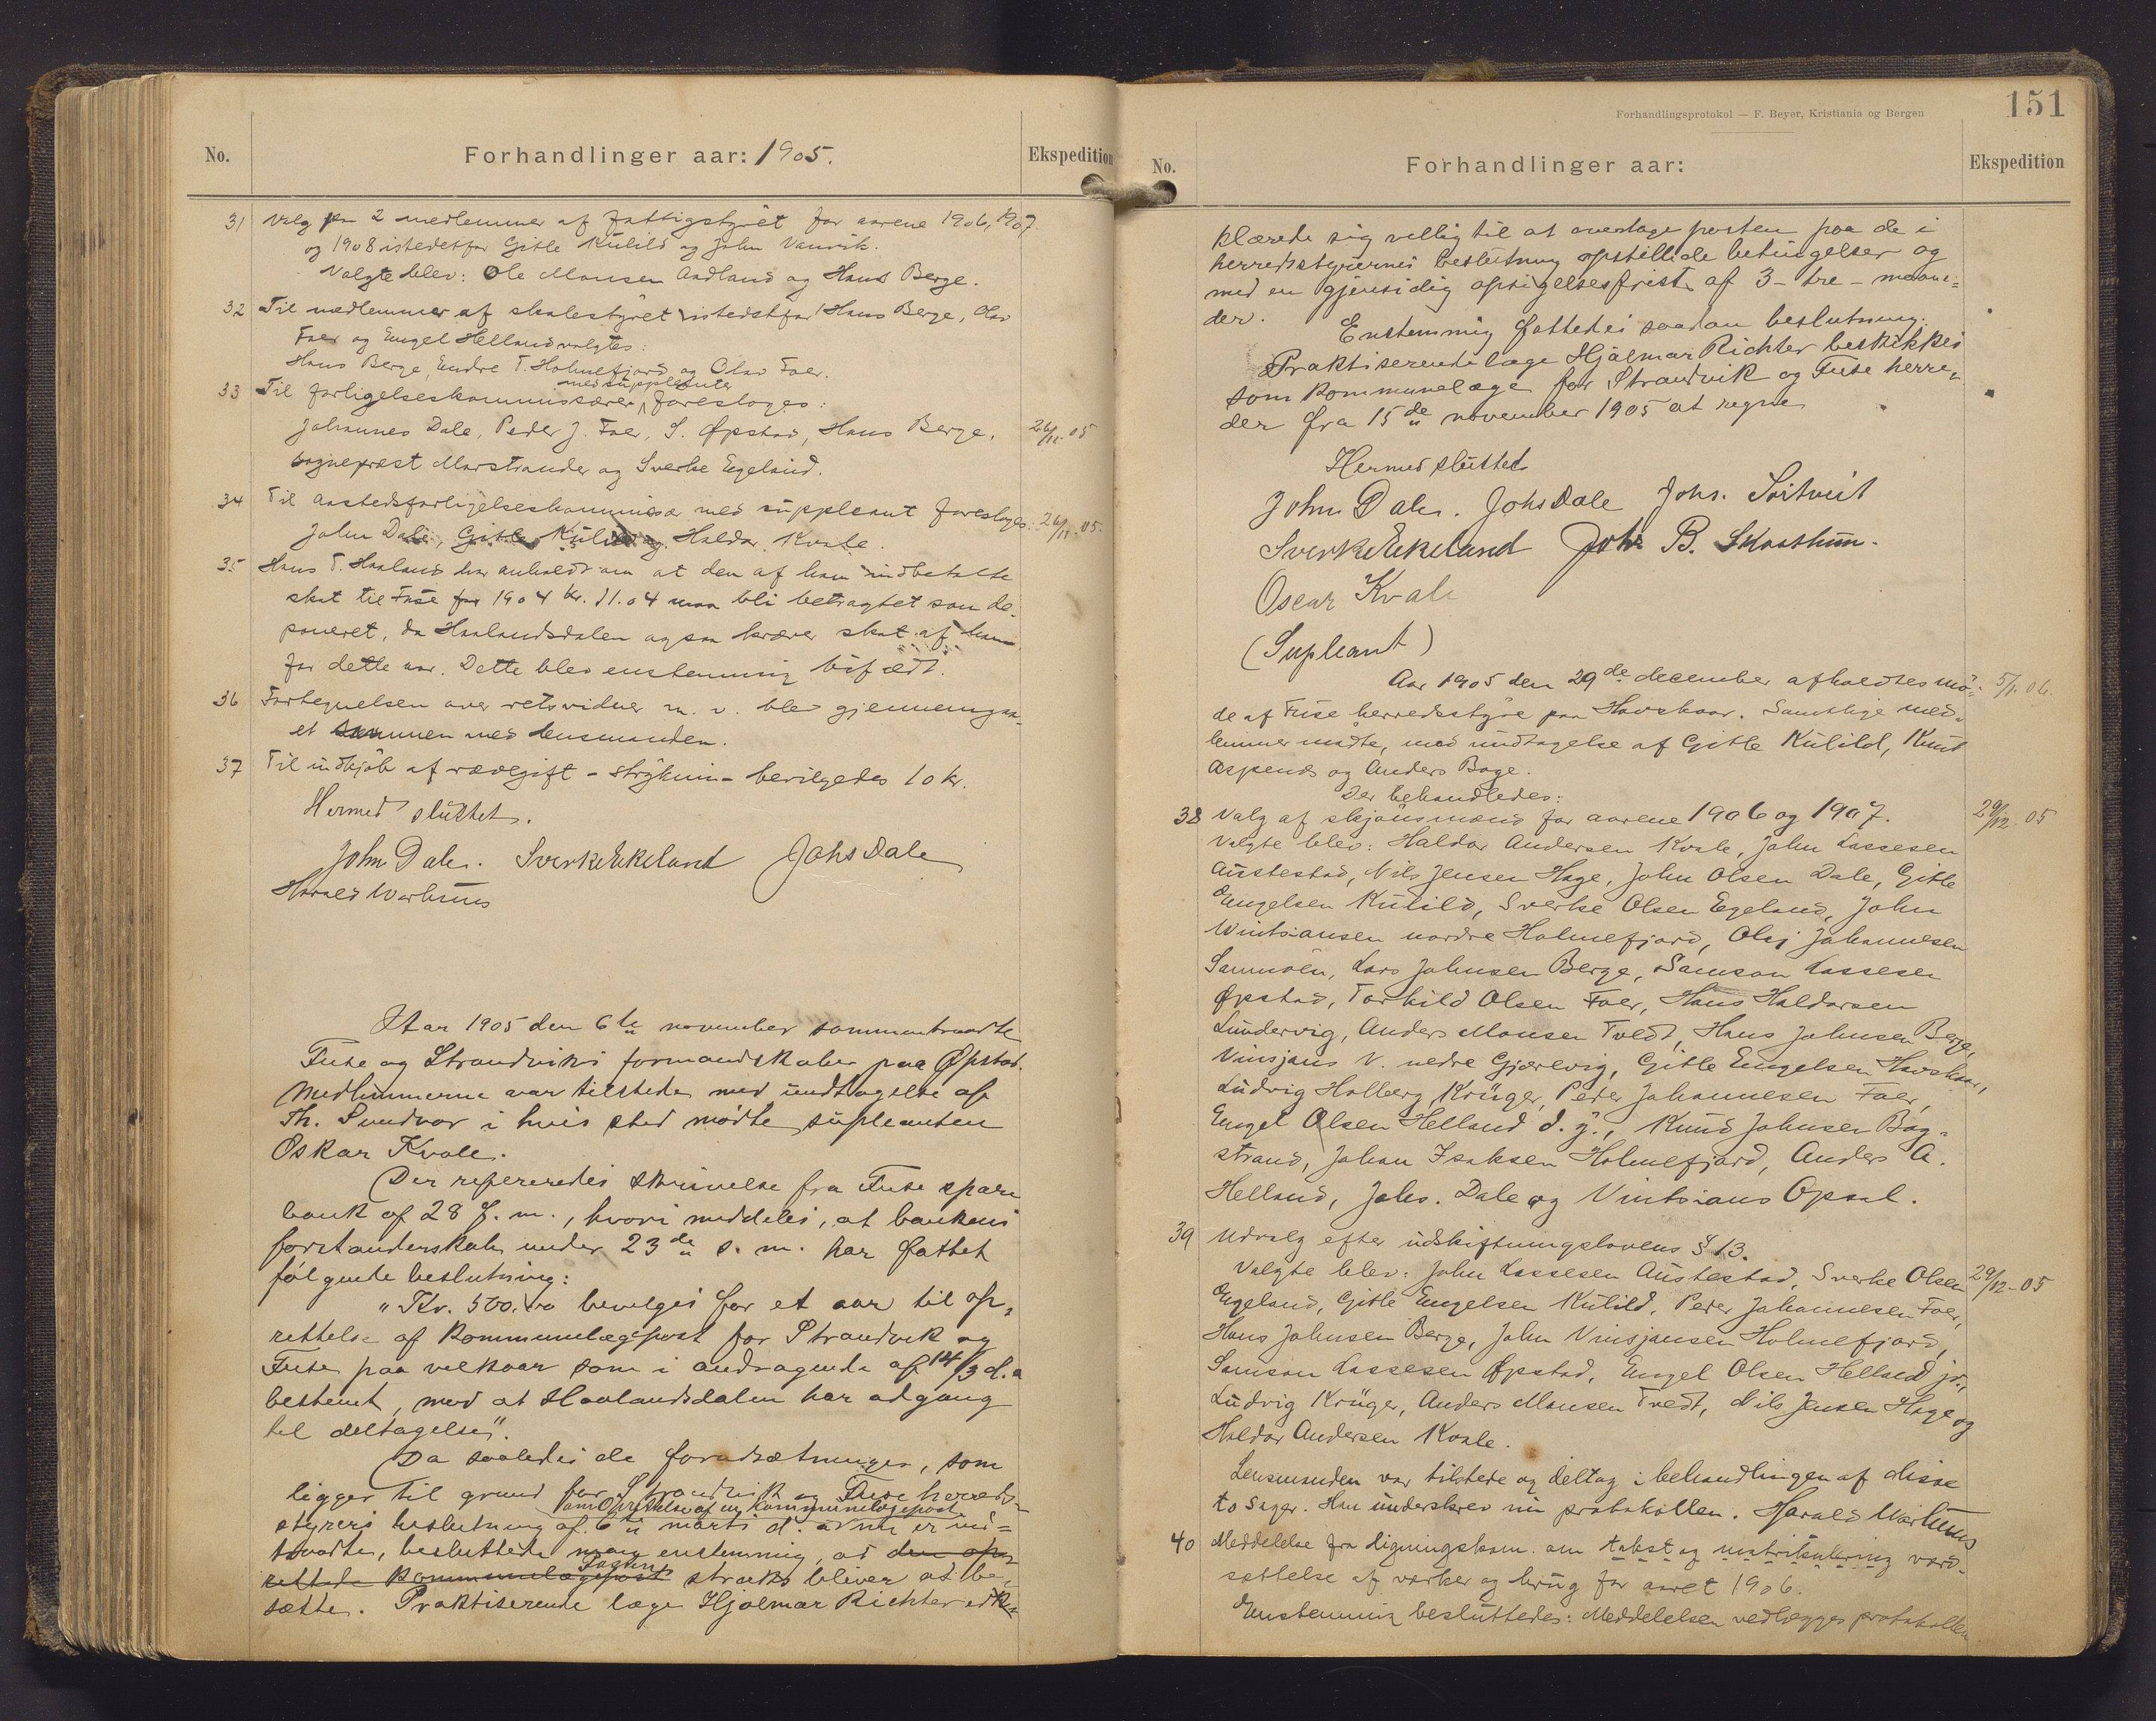 No.
Forhandlinger aar: 1905.
Ekspedition
31 Valg paa 2 medlemmer af fattigstyret for aarene 1906, 1907
og 1908 istedetfor Gitle Kulild og John Vanvik.
Valgte blev: Ole Monsen Aadland og Hans Berge.
32 Til medlemmer af skolestyret istedetfor Hans Berge, Olav
Foer og Engel Helland valgtes:
Hans Berge, Endre T. Holmefjord og Olav Foer.
33 Til forligelseskommissærer med suppleanter foresloges:
Johannes Dale, Peder J. Foer, S. Øpstad, Hans Berge, 26/11.05
sogneprest Marstrander og Sverke Egeland.
34 Til aastedsforligelseskommissær med suppleant foresloges: 26/11.05.
John Dale, Gitle Kulild og Haldor Kvale.
35 Hans T. Haaland har anholdt om at den af ham indbetalte
skat til Fuse for 1904 kr. 11.04 maa bli betragtet som de-
poneret, da Haalandsdalen ogsaa kræver skat af ham
for dette aar. Dette blev enstemmig bifaldt.
36 Fortegnelsen over retsvidner m. v. blev gjennemgaa-
et sammen med lensmanden.
37 Til indkjøb af rævegift - stryknin - bevilgedes 10 kr.
Hermed sluttet.
John Dale. Sverke Ekeland Johs Dale
Harald Warhuus
Aar 1905 den 6te november sammentraadte
Fuse og Strandviks formandskaber paa Øpstad.
Medlemmerne var tilstede med undtagelse af
Th. Sundvor i hvis sted mødte supleanten
Oskar Kvale.
Der refereredes skrivelse fra Fuse spare
bank af 28 f. m., hvori meddeles, at bankens
forstanderskab under 23de s. m. har fattet
følgende beslutning:
"Kr. 500,00 bevilges for et aar til op-
rettelse af kommunelægepost for Strandvik og
Fuse paa vilkaar som i andragende af 14/3 d. a
bestemt, med at Haalandsdalen har adgang
til deltagelse".
Da saaledes de forudsætninger, som
ligger til grund for Strandvik og Fuse herreds-
om oprettelse af en kommunelægepost
styrers beslutning af 6te marts d. a nu er ind-
traadte, besluttede man enstemmig, at den op-
rettede kommunelægepost Posten straks bliver at be-
sætte. Praktiserende læge Hjalmar Richter erk-
Forhandlingsprotokol — F. Beyer, Kristiania og Bergen
151
No.
Forhandlinger aar:
Ekspedition
klærede sig villig til at overtage posten paa de i
herredsstyrernes beslutning opstillede betingelser og
med en gjensidig opsigelsesfrist af 3 - tre - maane-
der.
Enstemmig fattedes saadan beslutning:
Praktiserende læge Hjalmar Richter beskikkes
som kommunelæge for Strandvik og Fuse herre-
der fra 15de november 1905 at regne
Hermed sluttet
John Dale. Johs Dale Johs. Sørtveit
Sverke Ekeland Johs B. Skaathun.
Oscar Kvale
(Supleant)
Aar 1905 den 29de december afholdtes mø- 5/1.06.
de af Fuse herredsstyre paa Havskaar. Samtlige med-
lemmer mødte, med undtagelse af Gitle Kulild, Knut
Aspenes og Anders Boge.
Der behandledes:
38 Valg af skjønsmænd for aarene 1906 og 1907. 29/12.05
Valgte blev: Haldor Andersen Kvale, John Lassesen
Austestad, Nils Jensen Hage, John Olsen Dale, Gitle
Engelsen Kulild, Sverke Olsen Egeland, John
Wintsiansen nordre Holmefjord, Ole J Johannesen
Sammøen, Lars Johnsen Berge, Samson Lassesen
Øpstad, Torkild Olsen Foer, Hans Haldorsen
Lundervig, Anders Monsen Tvedt, Hans Johnsen Berge,
Vinsjans V. nedre Gjærevig, Gitle Engelsen Havskaar,
Ludvig Holberg Krüger, Peder Johannesen Foer,
Engel Olsen Helland d. y., Knud Johnsen Bog-
strand, Johan Isaksen Holmefjord, Anders A.
Helland, Johs. Dale og Vintsians Opsal.
39 Udvalg efter udskiftningslovens § 13.
Valgte blev: John Lassesen Austestad, Sverke Olsen 29/12-05
Egeland, Gitle Engelsen Kulild, Peder Johannesen Foer,
Hans Johnsen Berge, John Vinsjansen Holmefjord,
Samson Lassesen Øpstad, Engel Olsen Helland jr.,
Ludvig Krüger, Anders Monsen Tvedt, Nils Jensen Hage og
Haldor Andersen Kvale.
Lensmanden var tilstede og deltog i behandlingen af disse
to sager. Han underskrev nu protokollen. Harald Warhuus
40 Meddelelse fra ligningskom. om takst og matrikulering værd-
settelse af værker og brug for aaret 1906.
Enstemmig besluttedes: Meddelelsen vedlægges protokollen